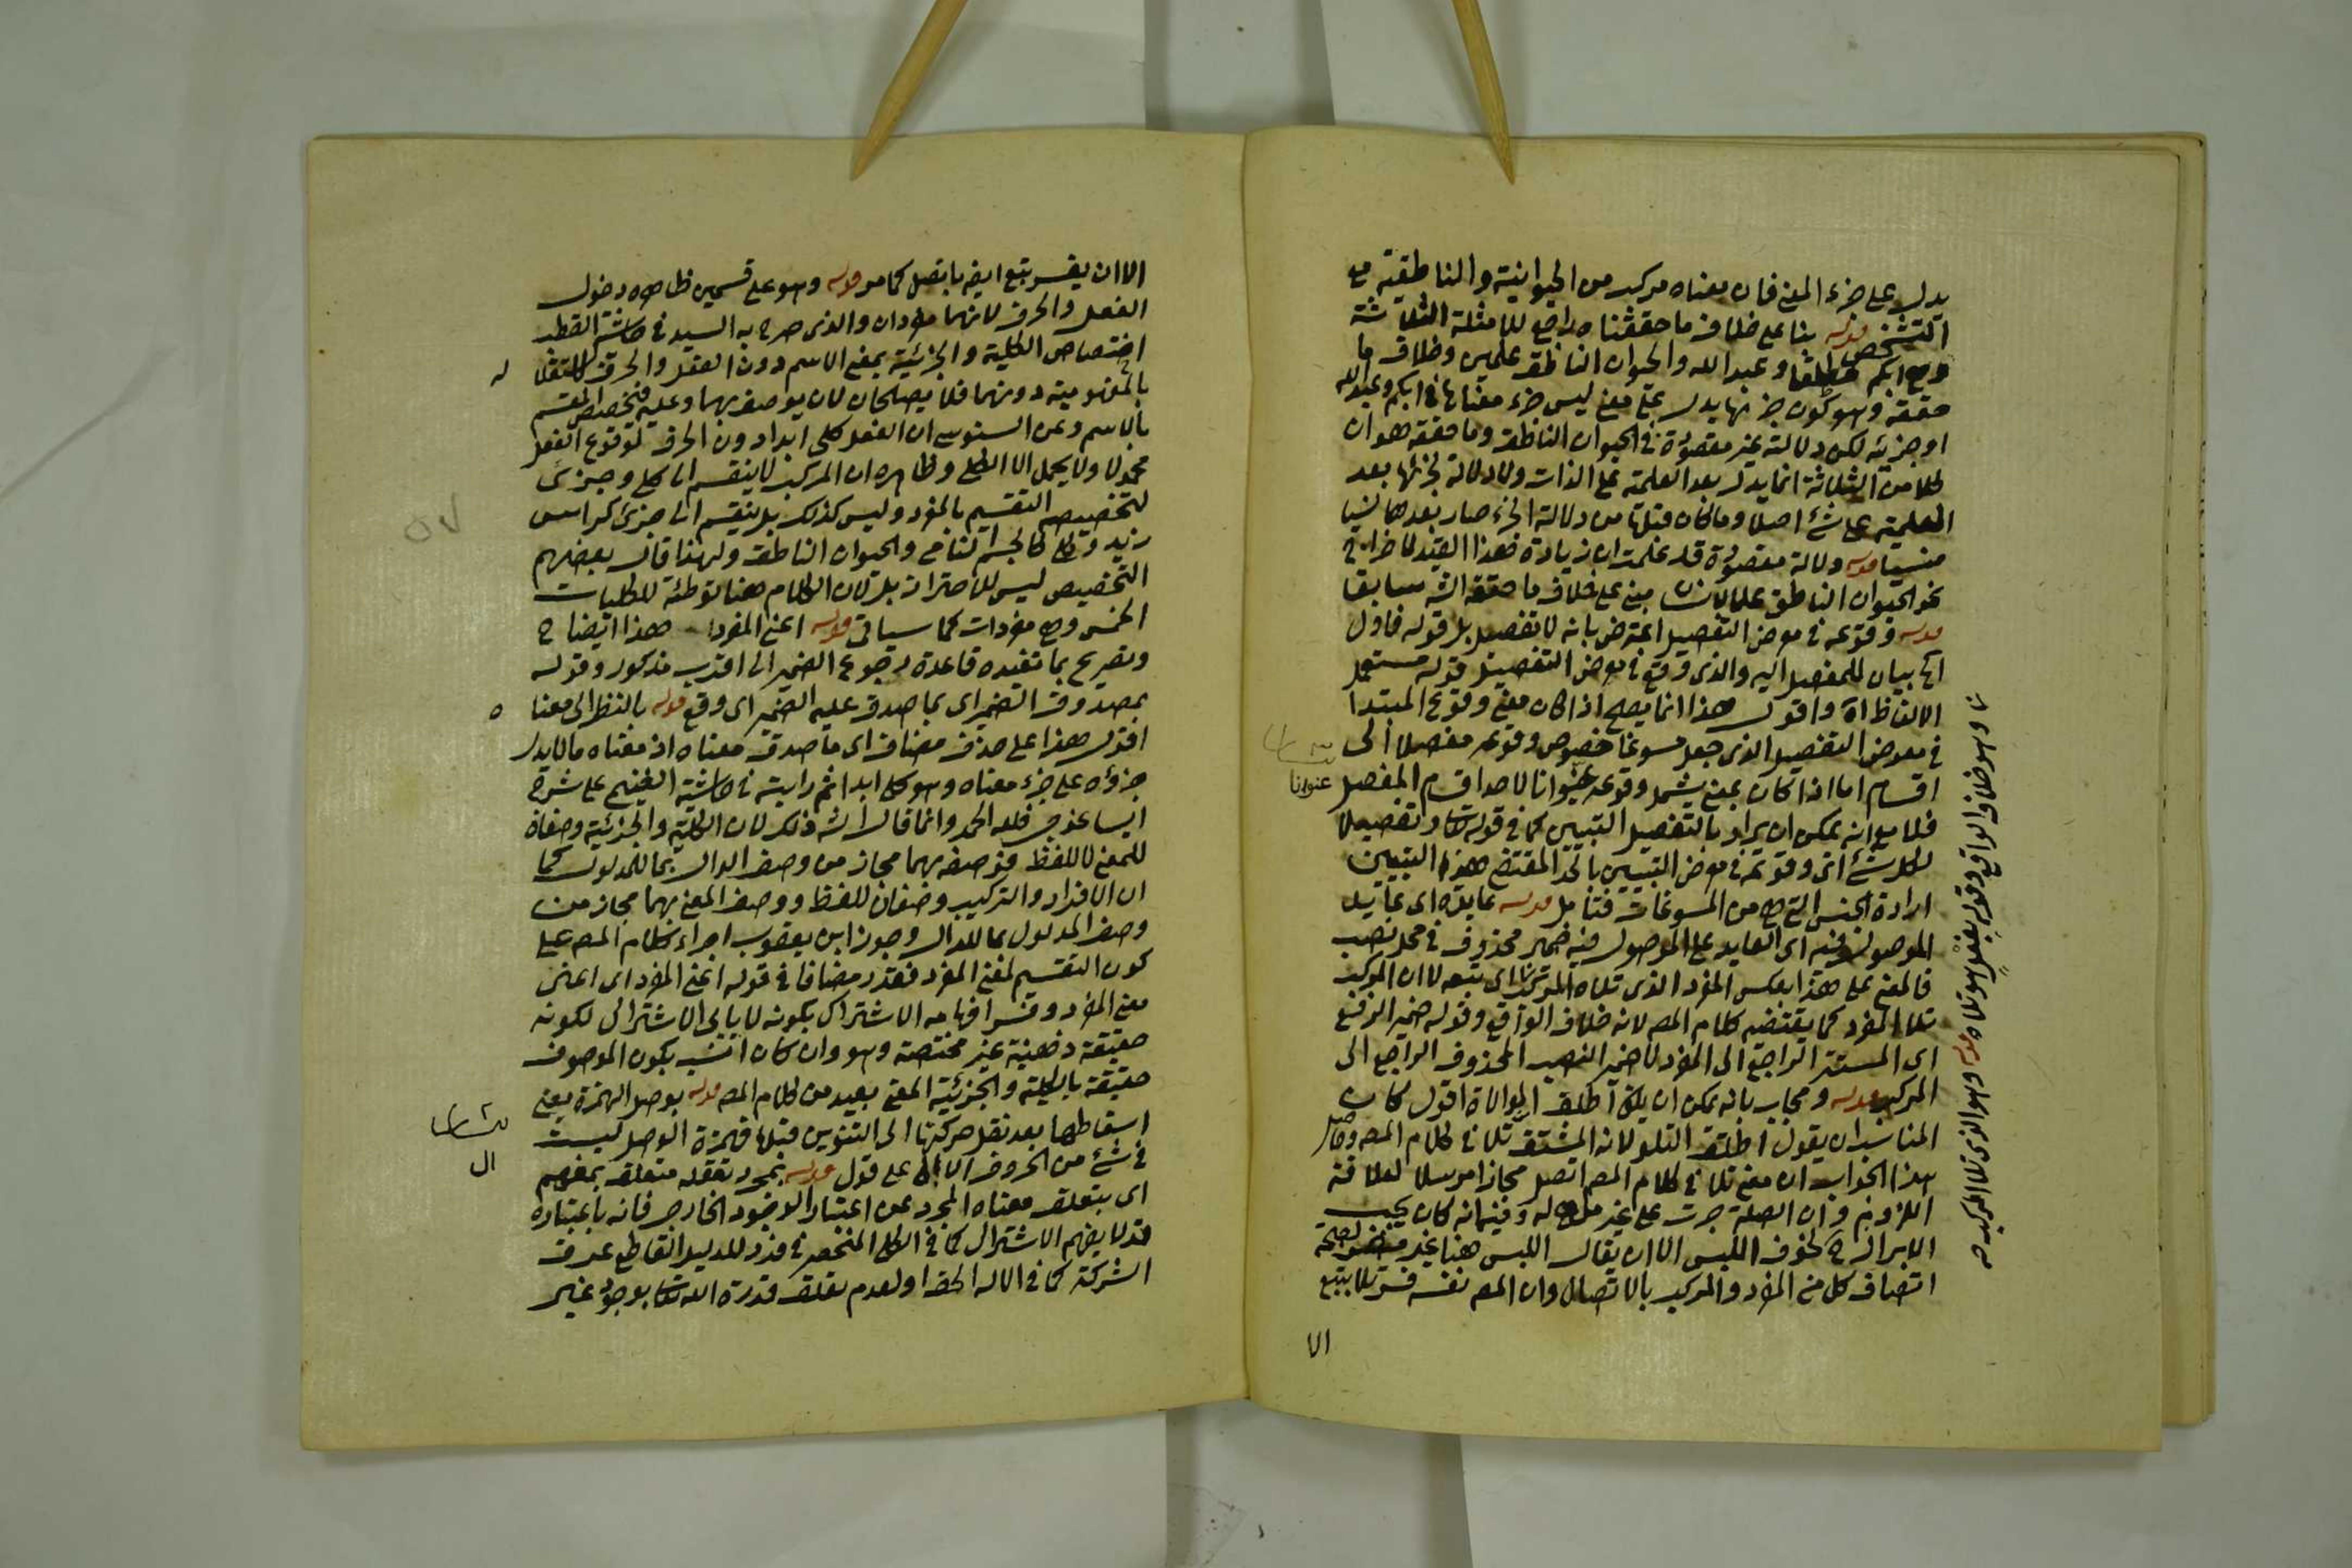 يدل على جزء المعنى فان معناه مركب من الحيوانية والناطقية مع
التشخص قوله بنا على خلاف ما حققناه راجع للامثلة الثلاثة
وهي ابكم مطلقا وعبد الله والحيوان الناطق علمين وخلاف ما
حققه وهو كون جزئها يدل على معنى ليس جزء معناها في ابكم وعبد الله
او جزئه لكن دلالته غير مقصودة في الحيوان الناطق وما حققه هو ان
كلا من الثلاثة انما يدل بعد العلمية على الذات ولا دلالة لجزئها بعد
العلمية على شئ اصلا وما كان قبلها من دلالة الجزء صار بعدها نسيا
منسيا قوله دلالة مقصودة قد علمت ان زيادة هذا القيد لاخراج
نحو الحيوان الناطق علما لانسان مبني على خلاف ما حققه الش سابقا
قوله وقوعه في معرض التفصيل اعترض بانه لا تفصيل بل قوله فاول
الخ بيان للمفصل اليه والذي وقع في معرض التفصيل قوله مستعمل
الالفاظ اه واقول هذا انما يصح اذا كان معنى وقوع المبتدا
في معرض التفصيل الذي جعل مسوغا خصوص وقوعه مفصلا الى
اقسام اما اذا كان بمعنى يشمل وقوعه عنوانا لاحد اقسام المفصل
عنوانا
فلا مع انه يمكن ان يراد بالتفصيل التبيين كما في قوله تعالى وتفصيلا
لكل شئ اي وقوعه في معرض التبيين بالحد المقتضي هذا التبيين
ارادة الجنس التي هي من المسوغات فتأمل قوله عايده اي عايد
الموصول وفيه اي العايد على الموصول فيه ضمير محذوف في محل نصب
فالمعنى على هذا بعكس المفرد الذي تلاه المركب اي تبعه لا ان المركب
تلا المفرد كما يقتضيه كلام المص لانه خلاف الواقع وقوله ضمير الرفع
اي المستتر الراجع الى المفرد لا ضمير النصب المحذوف الراجع الى
المركب قوله ويجاب بانه يمكن ان يكون اطلق الموالاة اقول كان
المناسب ان يقول اطلق التلو لانه المشتق تلا في كلام المص وحاصل
هذا الجواب ان معنى تلا في كلام المص اتصل مجازا مرسلا لعلاقة
اللزوم وان الصلة جرت على غير من هي له وفيه انه كان يجب
الابراز ح لخوف اللبس الا ان يقال اللبس هنا غير مضر لصحة
اتصاف كل من المفرد والمركب بالاتصال وان المص نفسه فسر تلا بتبع
الا
وهو خلاف الواقع وقوله تلاه قوله وهو الذي تلا المركب
الا ان يفسر تبع ايضا باتصل كما مر قوله وهو على قسمين ظاهره دخول
الفعل والحرف لانهما مفردان والذي صرح به السيد في حاشية القطب
اختصاص الكلية والجزئية بمعنى الاسم دون الفعل والحرف لاستقلا
له
بالمفهومية دونهما فلا يصلحان لان يوصف بهما وعليه فتخصيص المقسم
بالاسم وعن السنوسي ان الفعل كلي ابدا دون الحرف لوقوع الفعل
محمولا ولا يحمل الا الكلي وظاهره ان المركب لا ينقسم الى كلي وجزئي
لتخصيصه التقسيم بالمفرد وليس كذلك بل ينقسم الى جزئي كراس
زيد وكلي كالجسم النامي والحيوان الناطق ولهذا قال بعضهم
التخصيص ليس للاحتراز بل لان الكلام هنا توطئة للكليات
الخمس وهي مفردات كما سياتي قوله اعني المفرد هذا ايضاح
وتصريح بما تفيده قاعدة رجوع الضمير الى اقرب مذكور وقوله
بمصدوق الضمير اي بما صدق عليه الضمير اي وقع قوله بالنظر الى معنا
ه
اقول هذا على حذف مضاف اي ما صدق معناه اذ معناه ما لا يدل
جزؤه على جزء معناه وهو كلي ابدا ثم رايته في حاشية الغنيمي على شرح
ايساغوجي فلله الحمد وانما قال الش ذلك لان الكلية والجزئية وصفان
للمعنى لا للفظ فوصفه بهما مجاز من وصف الدال بما للمدلول كما
ان الافراد والتركيب وصفان للفظ ووصف المعنى بهما مجاز من
وصف المدلول بما للدال وجوز ابن يعقوب اجراء كلام المص على
كون التقسيم لمعنى المفرد فقدر مضافا في قوله اعني المفرد اي اعني
معنى المفرد وفسر افهامه الاشتراك بكونه لا يابى الاشتراك لكونه
حقيقة ذهنية غير مختصة وهو وان كان انسب بكون الموصوف
حقيقة بالكلية والجزئية المعنى بعيد من كلام المص قوله بوصل الهمزة يعني
اسقاطها بعد نقل حركتها الى التنوين قبلها فهمزة الوصل ليست
في شئ من الحروف الا ال على قول قوله بمجرد تعقله متعلق بمفهم
ال
اي بتعلق معناه المجرد عن اعتبار الوجود الخارجي فانه باعتباره
قد لا يفهم الاشتراك كما في الكلي المنحصر في فرد للدليل القاطع عرق
الشركة كما في الاله الحق او لعدم تعلق قدرة الله تعالى بوجود غير